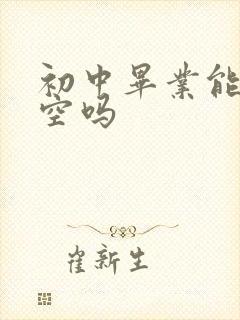 初中畢業能
空吗
崔新生